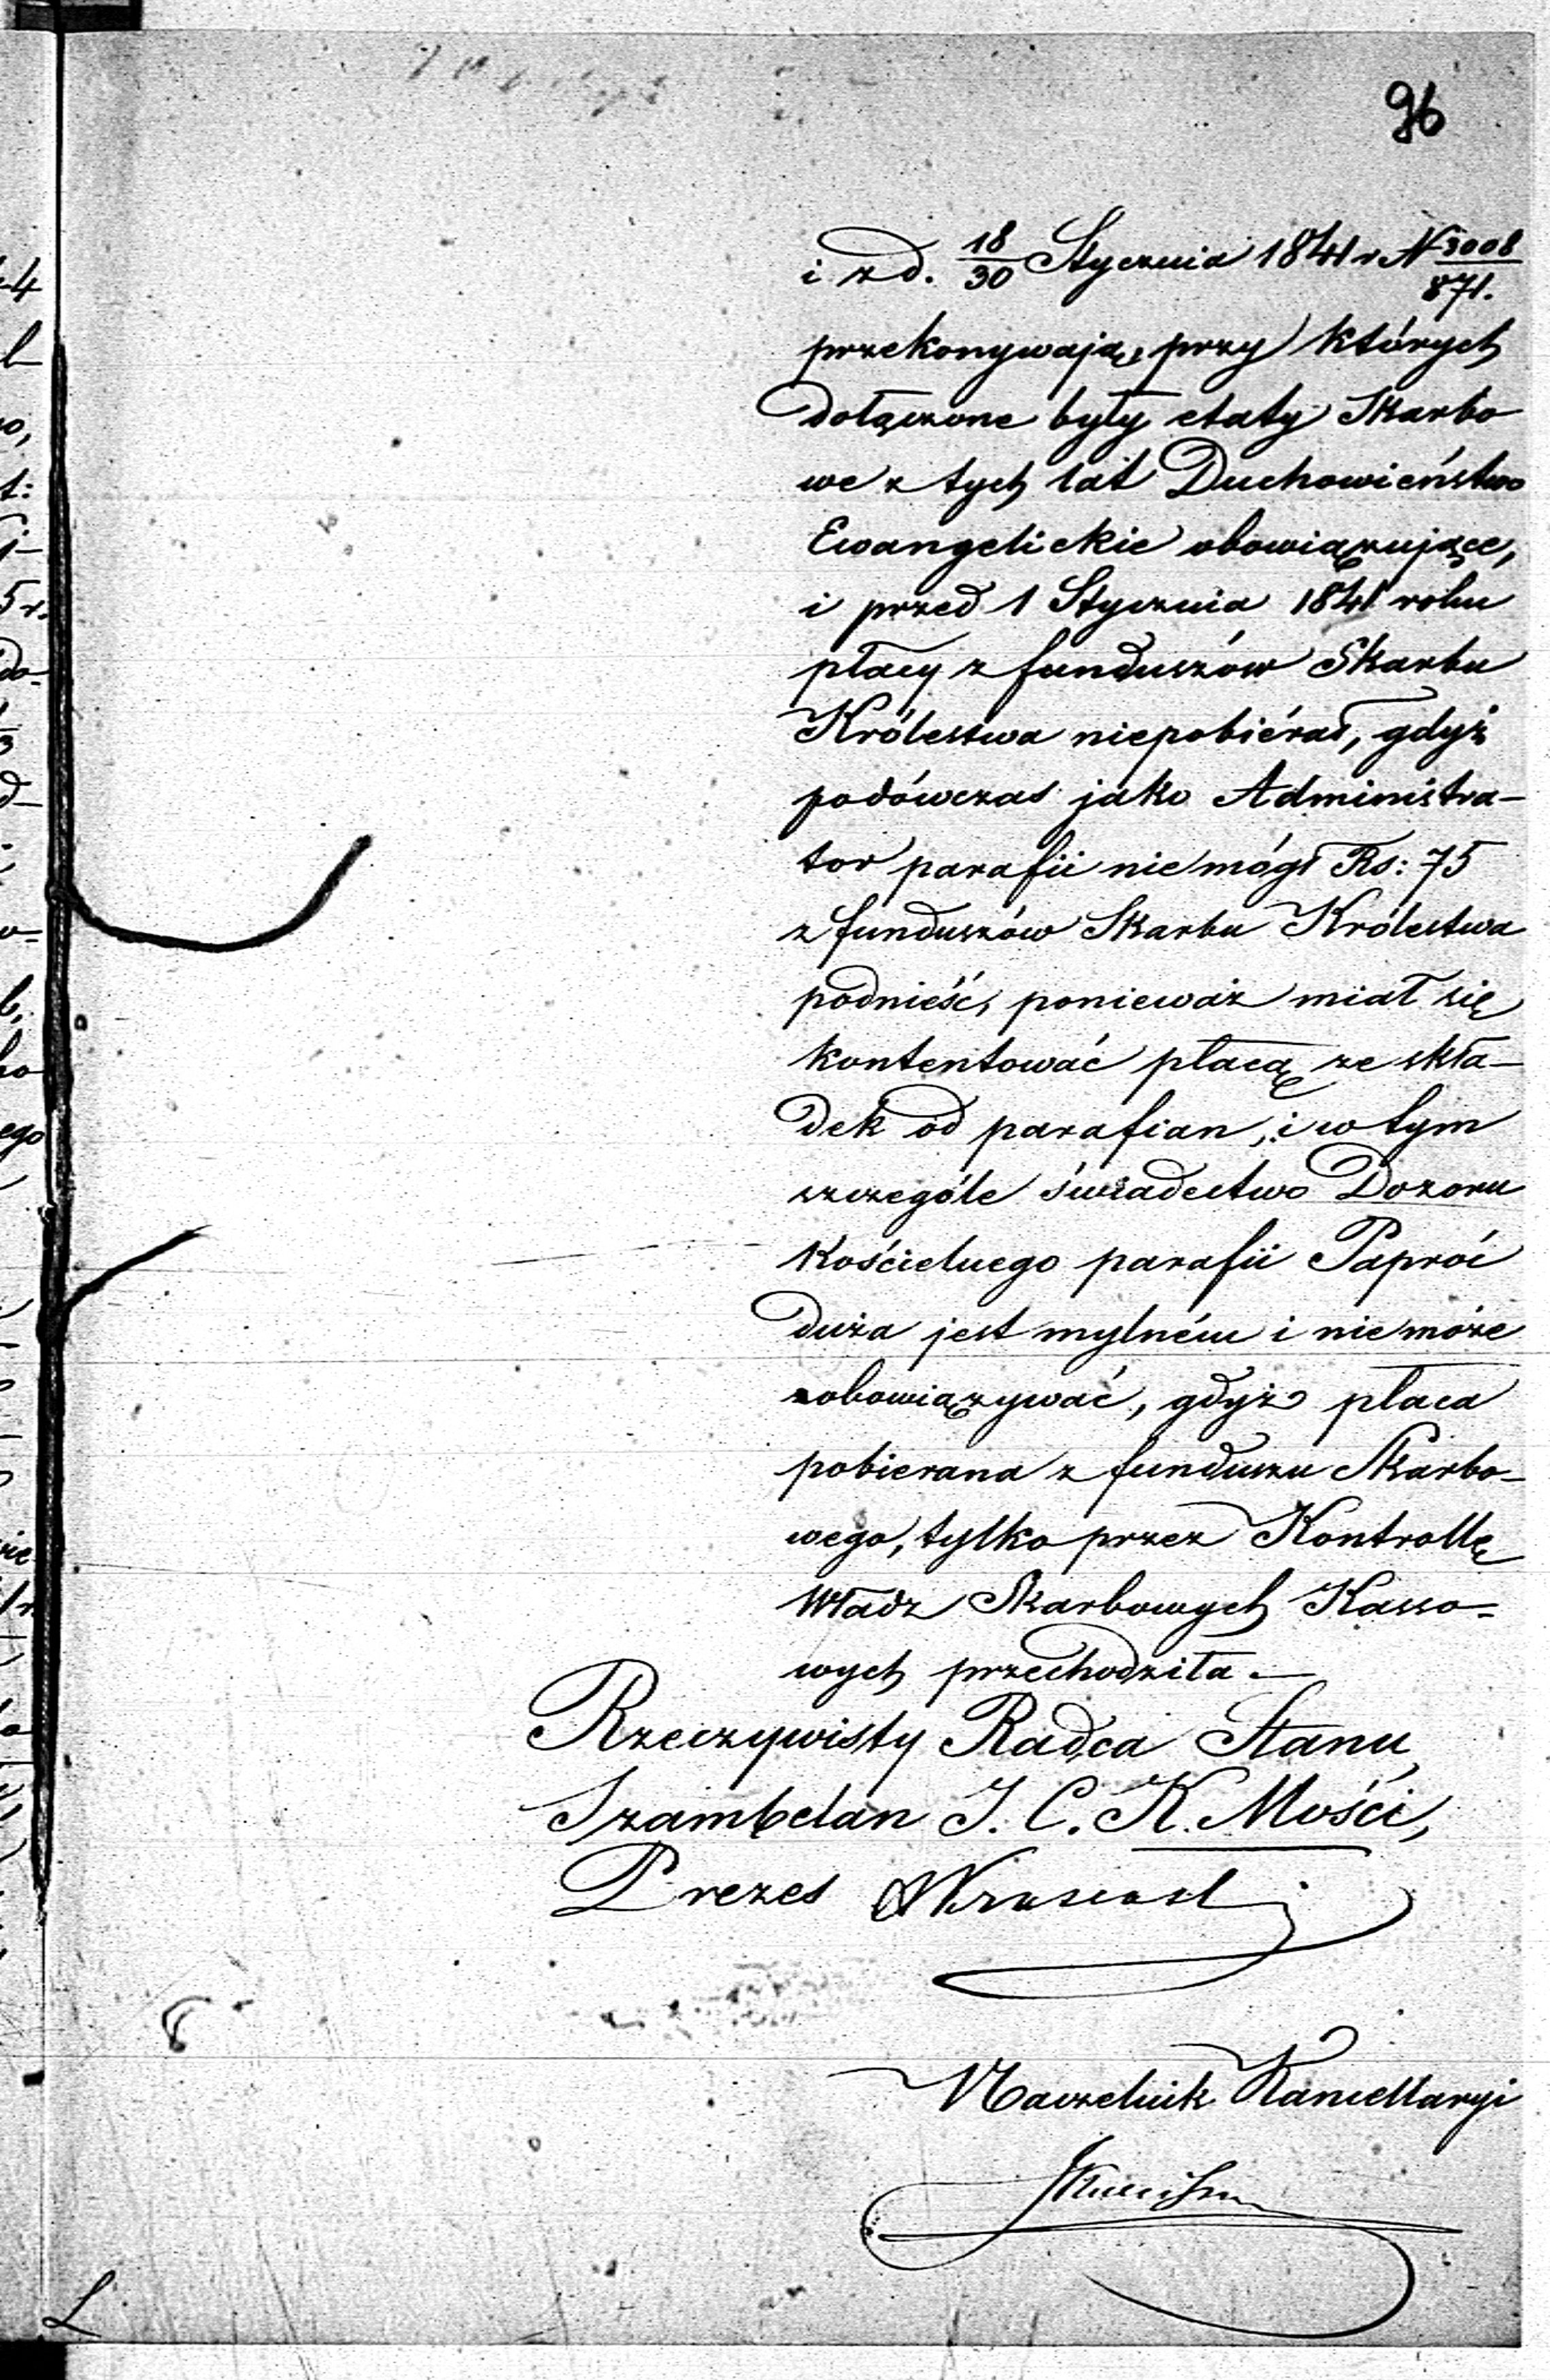 96
i z d. 18/30 Stycznia 1841 r N 3008/871.
przekonywają, przy których
dołączone były etaty Skarbo
we z tych lat Duchowieństwo
Ewangelickie obowiązujące,
i przed 1 Stycznia 1841 roku
płacy z funduszów Skarbu
Królestwa niepobiérał, gdyż
podówczas jako Administra-
tor parafii nie mógł Rs: 75
z funduszów Skarbu Królestwa
podnieść, ponieważ miał się
kontentować płacą ze skła-
dek od parafian, i w tym
szczególe świadectwo Dozoru
Kościelnego parafii Paproć
duża jest mylném i nie może
zobowiązywać, gdyż płaca
pobierana z funduszu Skarbo-
wego, tylko przez Kontrollę
Władz Skarbowych Kasso-
wych przechodziła.
Rzeczywisty Radca Stanu,
Szambelan J. C. K. Mości,
Prezes
Naczelnik Kancellaryi